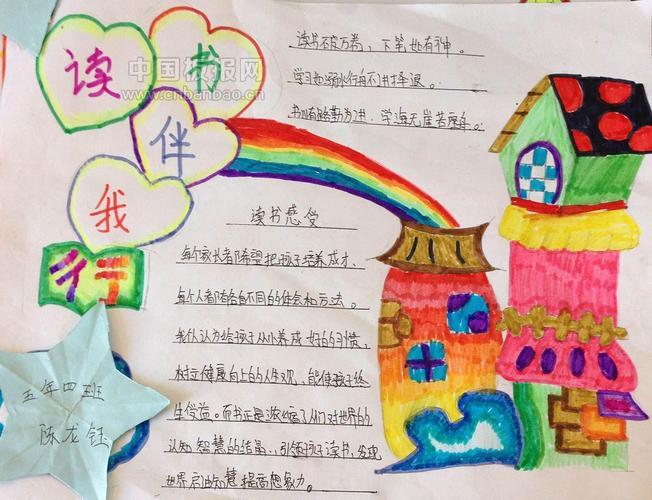 读书
伴
我
行
中国板报网
www.cnbanbao.cn
读书破万卷，下笔如有神。
学习如逆水行舟不进择退。
书山有路勤为径，学海无崖苦座舟。
读书感受
每个家长者都希望把孩子培养成才、
每个人都有各自不同的体会和方法。
我仍认为给孩子从小养成好的习惯，
树立健康向上的人生观，能使孩子终
生受益。而书正是浓缩了人们对世界的
认知智慧的结晶，引领孩子读书，发现
世界启迪知慧提高想象力。
五年四班
陈龙钰